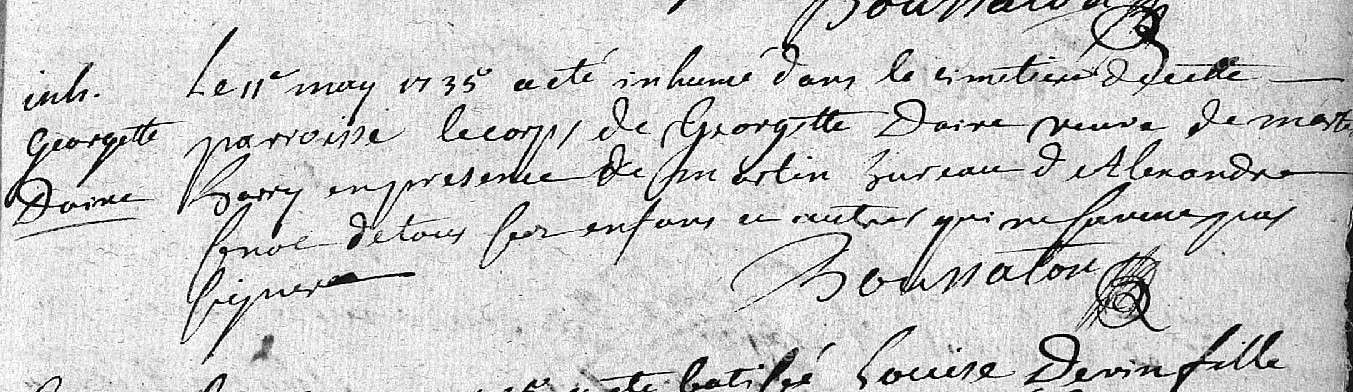 Boussaton
inh. Le 11e may 1735 a eté inhumé dans le cimetiere de cette
Georgette parroisse le corps de Georgette Daire veuve de
Daire Barry en presence de martin Bureau d Alexandre
de tous ses enfans et autres qui ne savent pas
signer Boussaton
a eté batisé Louise Devin fille